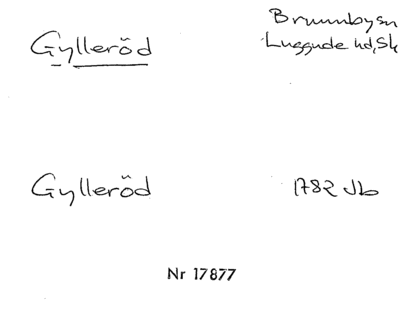 Gylleröd
Brunnbysn
Luggude hd, Sk
Gylleröd
1782 Jb
Nr 17877